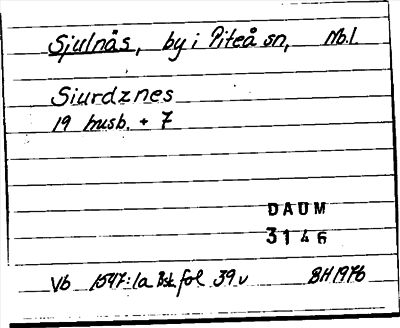 Sjulnås, by i Piteå sn, Nb.l.
Siurdznes
19 husb. + 7
DAUM
3146
Vb 1547:1a Bsk fol 39 v BH 1976